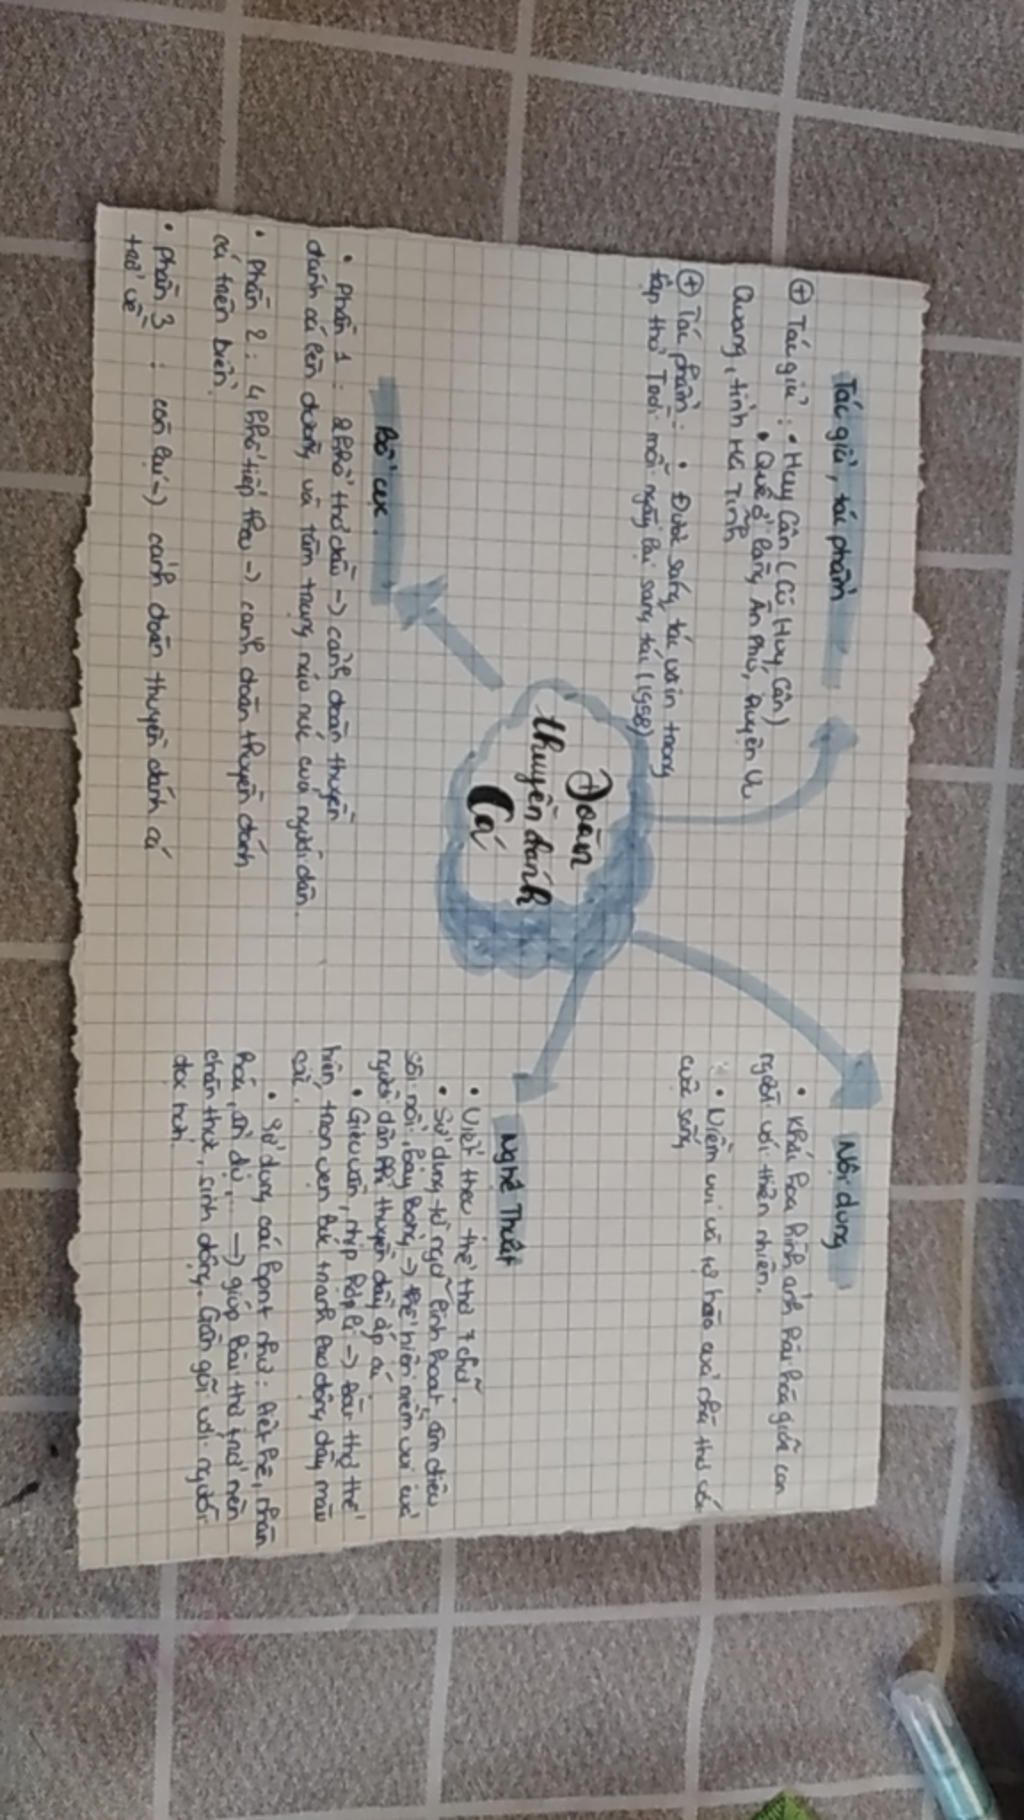 Tác giả, tác phẩm
⊕ Tác giả : • Huy Cận (Cù Huy Cận)
• Quê ở làng Ân Phú, huyện Vụ
Quang, tỉnh Hà Tĩnh
⊕ Tác phẩm : • Được sáng tác và in trong
tập thơ Trời mỗi ngày lại sáng tác (1958)
Đoàn
thuyền đánh
Cá
Bố cục.
• Phần 1 : 2 khổ thơ đầu -> cảnh đoàn thuyền
đánh cá lên đường và tâm trạng náo nức của người dân.
• Phần 2 : 4 khổ tiếp theo -> cảnh đoàn thuyền đánh
cá trên biển.
• Phần 3 : còn lại -> cảnh đoàn thuyền đánh cá
trở về
Nội dung
• Khắc họa hình ảnh hài hòa giữa con
người với thiên nhiên.
• Niềm vui và tự hào của nhà thơ với
cuộc sống
Nghệ Thuật
• Viết theo thể thơ 7 chữ
• Sử dụng từ ngữ linh hoạt, âm điệu
sôi nổi, bay bổng -> thể hiện niềm vui của
người dân khi thuyền đầy ắp cá
• Gieo vần, nhịp hợp lí -> bài thơ thể
hiện, trọn vẹn bức tranh lao động đầy màu
sắc.
• Sử dụng các bpnt như : liệt kê, nhân
hoá, ẩn dụ,... -> giúp bài thơ trở nên
chân thực, sinh động. Gần gũi với người
đọc hơn.